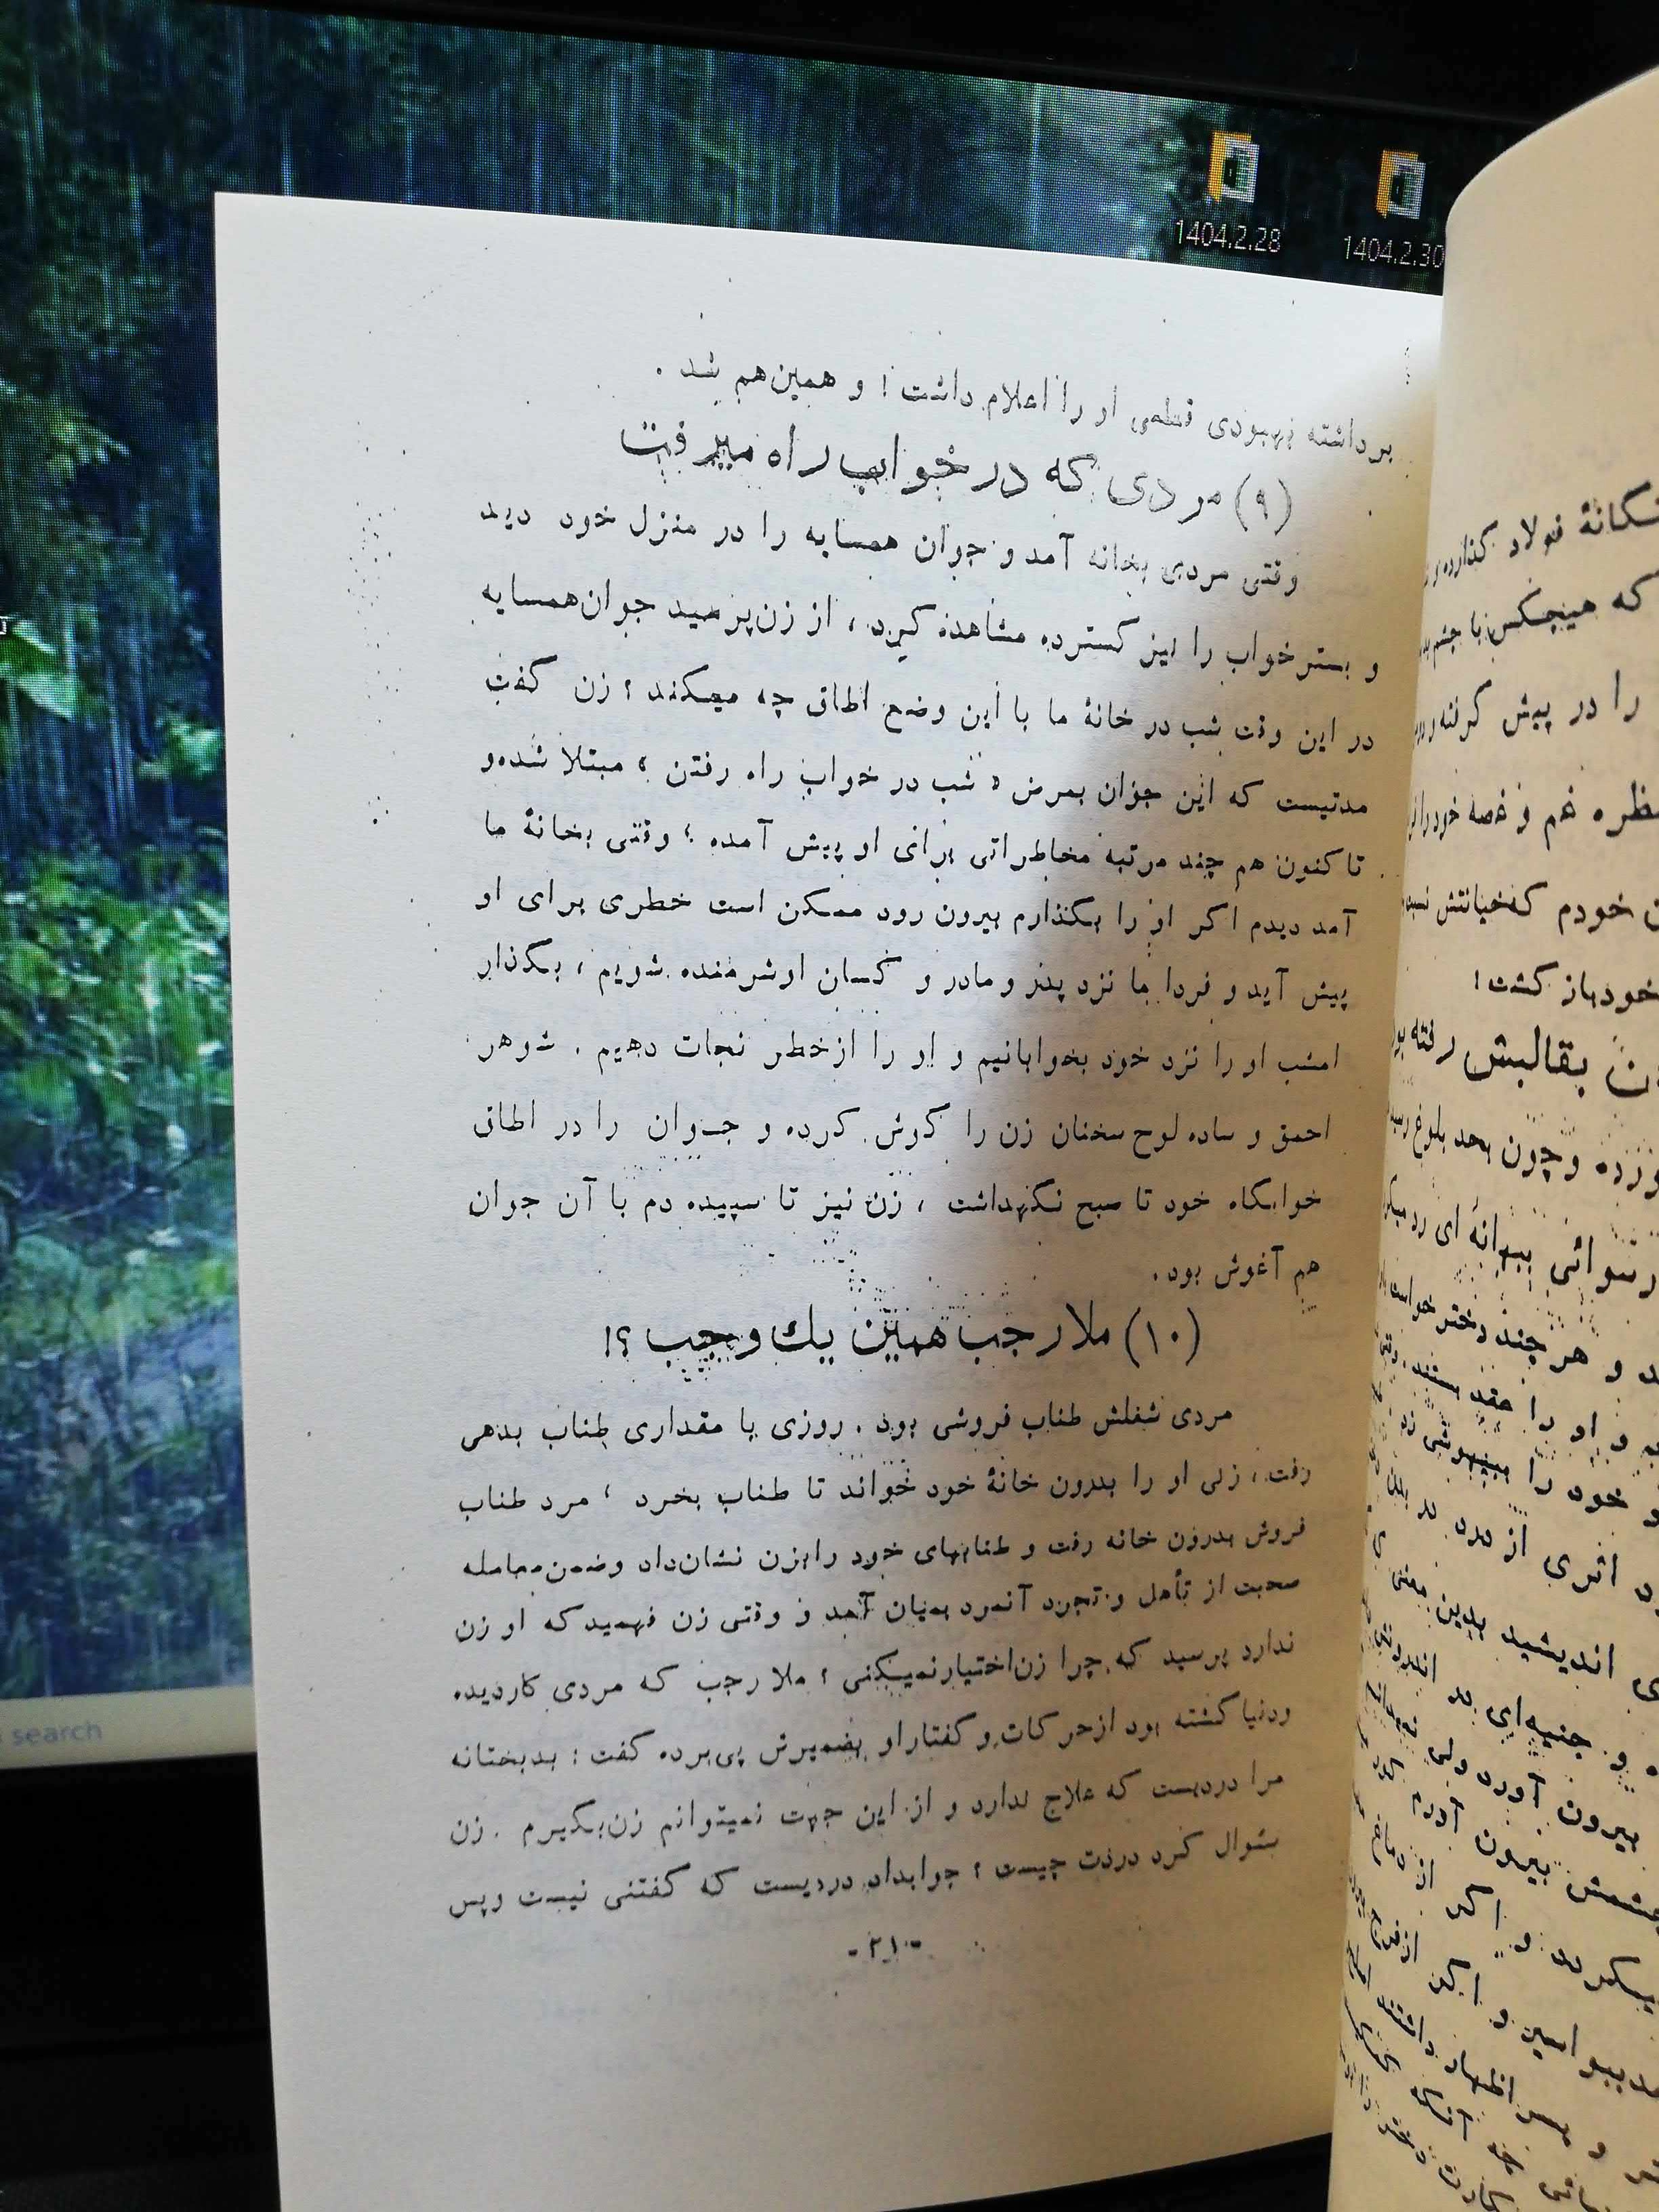 1404.2.28
1404.2.30
برداشته بهبودی قطعی او را اعلام داشت؛ و همین‌هم شد .
(۹) مردی که در خواب راه میرفت
وقتی مردی بخانه آمد و جوان همسایه را در منزل خود دید
و بستر خواب را نیز گسترده مشاهده کرد ، از زن‌پرسید جوان‌همسایه
در این وقت شب در خانهٔ ما با این وضع اطاق چه میکند ؛ زن گفت
مدتیست که این جوان بمرض « شب در خواب راه رفتن » مبتلا شده‌و
تاکنون هم چند مرتبه مخاطراتی برای او پیش آمده ؛ وقتی بخانهٔ ما
آمد دیدم اگر او را بگذارم بیرون رود ممکن است خطری برای او
پیش آید و فردا ما نزد پدر و مادر و کسان او شرمنده شویم ، بگذار
امشب او را نزد خود بخوابانیم و او را از خطر نجات دهیم . شوهر
احمق و ساده لوح سخنان زن را گوش کرده و جوان را در اطاق
خوابگاه خود تا صبح نگهداشت ، زن نیز تا سپیده دم با آن جوان
هم آغوش بود .
(۱۰) ملا رجب همین یك وجب ؟!
مردی شغلش طناب فروشی بود . روزی با مقداری طناب بدهی
رفت ، زنی او را بدرون خانهٔ خود خواند تا طناب بخرد ، مرد طناب
فروش بدرون خانه رفت و طنابهای خود را بزن نشان‌داد و ضمن معامله
صحبت از تأهل و تجرد آنمرد بمیان آمد و وقتی زن فهمید که او زن
ندارد پرسید که چرا زن‌اختیار‌نمیکنی ؛ ملا رجب که مردی کاردیده
و دنیا گشته بود از حرکات و گفتار او بضمیرش پی‌برده گفت : بدبختانه
مرا دردیست که علاج ندارد و از این جهت نمیتوانم زن‌بگیرم . زن
سئوال کرد دردت چیست ؛ جوابداد دردیست که گفتنی نیست و پس
- ۲۱ -
search
فولاد گذارده و
که هیچکس با چشم
را در پیش گرفته و
غم و غصه خود را
خودم که‌خیانتش
خود باز گشت !
بقالبش رفته
و چون بحد بلوغ
ببهانهٔ ای رد
و هر چند دختر
و او را
خود را
اثری از
اندیشید بدین معنی
و
بیرون آورد ولی
بیرون آورد
و اگر از
و اگر از